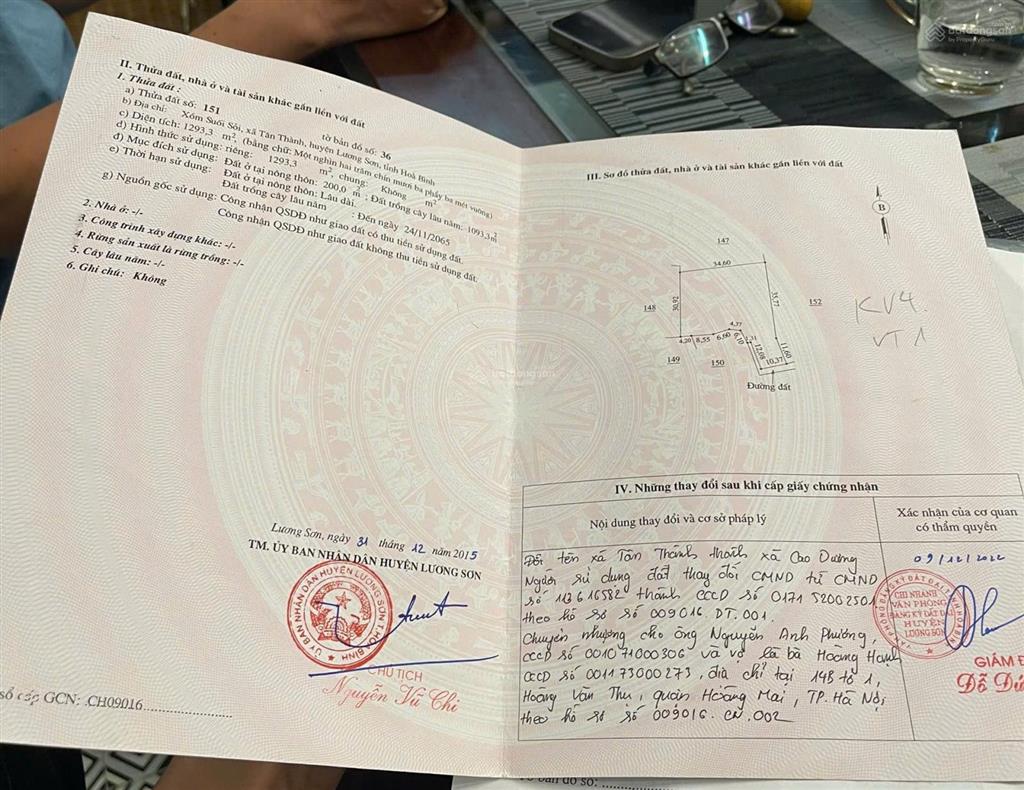 II. Thửa đất, nhà ở và tài sản khác gắn liền với đất
1. Thửa đất :
a) Thửa đất số: 151 tờ bản đồ số: 36
b) Địa chỉ: Xóm Suối Sỏi, xã Tân Thành, huyện Lương Sơn, tỉnh Hoà Bình
c) Diện tích: 1293,3 m², (bằng chữ: Một nghìn hai trăm chín mươi ba phẩy ba mét vuông)
d) Hình thức sử dụng: riêng: 1293,3 m²; chung: Không m²
đ) Mục đích sử dụng: Đất ở tại nông thôn: 200,0 m²; Đất trồng cây lâu năm: 1093,3m²
e) Thời hạn sử dụng: Đất ở tại nông thôn: Lâu dài.
Đất trồng cây lâu năm : Đến ngày 24/11/2065
g) Nguồn gốc sử dụng: Công nhận QSDĐ như giao đất có thu tiền sử dụng đất.
Công nhận QSDĐ như giao đất không thu tiền sử dụng đất.
2. Nhà ở: -/-
3. Công trình xây dựng khác: -/-
4. Rừng sản xuất là rừng trồng: -/-
5. Cây lâu năm: -/-
6. Ghi chú: Không
Lương Sơn, ngày 31 tháng 12 năm 2015
TM. ỦY BAN NHÂN DÂN HUYỆN LƯƠNG SƠN
ỦY BAN NHÂN DÂN HUYỆN LƯƠNG SƠN T.HÒA BÌNH
CHỦ TỊCH
Nguyễn Vũ Chi
số cấp GCN: CH09016
III. Sơ đồ thửa đất, nhà ở và tài sản khác gắn liền với đất
B
147
34,60
148
30,92
35,77
152
KV4.
VT1
4,20
8,55
6,60
4,37
6,10
12,08
11,60
10,37
149
150
Đường đất
IV. Những thay đổi sau khi cấp giấy chứng nhận
Nội dung thay đổi và cơ sở pháp lý
Xác nhận của cơ quan
có thẩm quyền
Đổi tên xã Tân Thành thành xã Cao Dương
Người sử dụng đất thay đổi CMND từ CMND
số 113616582 thành CCCD số 01715200250
theo hồ sơ số 009016.DT.001.
Chuyển nhượng cho ông Nguyễn Anh Phương,
CCCD số 001071000306 và vợ là bà Hoàng Hạnh
CCCD số 001173000273, địa chỉ tại 14B tổ 1,
Hoàng Văn Thụ, quận Hoàng Mai, TP. Hà Nội,
theo hồ sơ số 009016.CN.002
09/12/2022
CHI NHÁNH
VĂN PHÒNG
ĐĂNG KÝ ĐẤT ĐAI
HUYỆN
LƯƠNG SƠN
GIÁM Đ
Đỗ Đứ